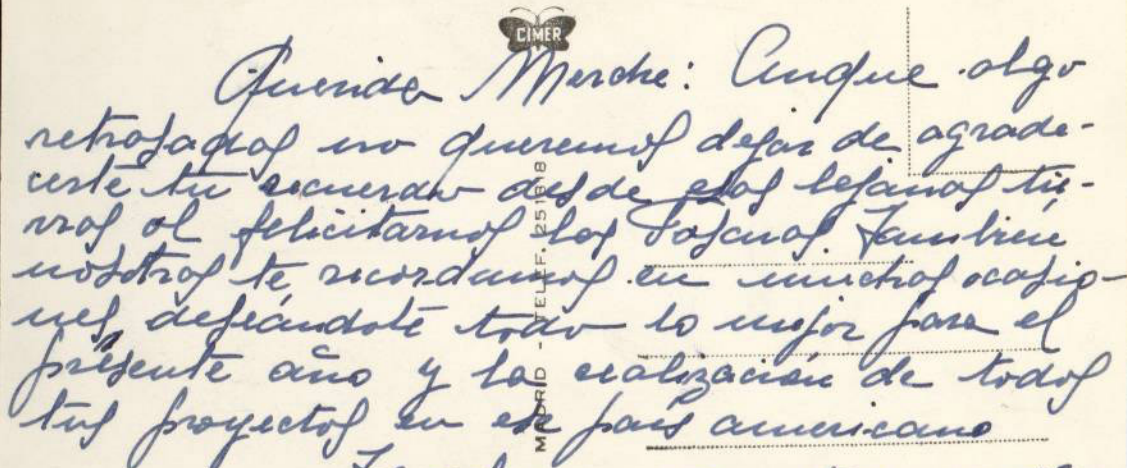 CIMER
Querida Merche: Aunque algo
retrasados no queremos dejar de agrade-
certe tu recuerdo desde esas lejanas tie-
rras al felicitarnos las Pascuas. También
nosotros te recordamos en muchas ocasio-
nes, deseándote todo lo mejor para el
presente año y la realización de todos
tus proyectos en ese país americano
MADRID - TELEF. 251818